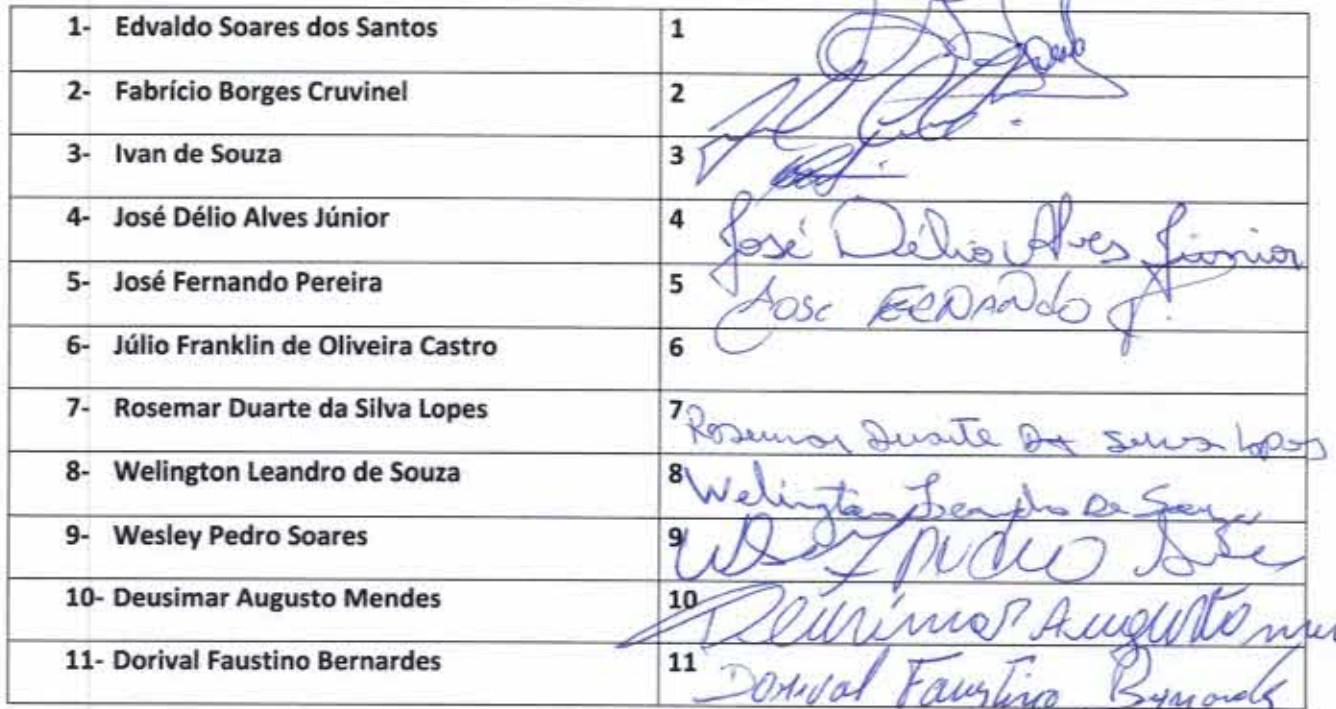 1- Edvaldo Soares dos Santos 1
2- Fabrício Borges Cruvinel 2
3- Ivan de Souza 3
4- José Délio Alves Júnior 4 José Délio Alves Júnior
5- José Fernando Pereira 5 José FERNANDO P.
6- Júlio Franklin de Oliveira Castro 6
7- Rosemar Duarte da Silva Lopes 7 Rosemar Duarte Da Silva Lopes
8- Welington Leandro de Souza 8 Welington Leandro De Souza
9- Wesley Pedro Soares 9 Pedro
10- Deusimar Augusto Mendes 10 Deusimar Augusto
11- Dorival Faustino Bernardes 11 Dorival Faustino Bernardes